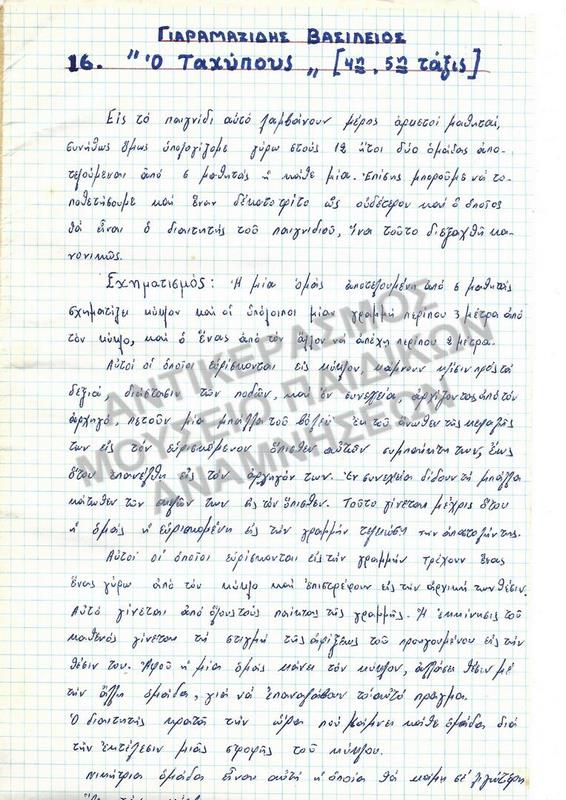 ΓΙΑΡΑΜΑΖΙΔΗΣ ΒΑΣΙΛΕΙΟΣ
16. "Ὁ Ταχύπους„ [4η, 5η τάξις]
Εἰς τό παιγνίδι αὐτό λαμβάνουν μέρος ἀρκετοί μαθηταί,
συνήθως ὅμως ὑπολογίζομε γύρω στούς 12 ἤτοι δύο ὁμάδας ἀπο-
τελούμεναι ἀπό 6 μαθητάς ἡ κάθε μία. Ἐπίσης μποροῦμε νά το-
ποθετήσουμε καί ἕναν δέκατο τρίτο ὡς οὐδέτερον καί ὁ ὁποῖος
θά εἶναι ὁ διαιτητής τοῦ παιγνιδιοῦ, ἵνα τοῦτο διεξαχθῇ κα-
νονικῶς.
Σχηματισμός: Ἡ μία ὁμάς ἀποτελουμένη ἀπό 6 μαθητάς
σχηματίζει κύκλον καί οἱ ὑπόλοιποι μίαν γραμμή περίπου 3 μέτρα ἀπό
τόν κύκλο, καί ὁ ἕνας ἀπό τόν ἄλλον νά ἀπέχῃ περίπου 2 μέτρα.
Αὐτοί οἱ ὁποῖοι εὑρίσκονται εἰς κύκλον, κάμνουν κλίσιν πρός τά
δεξιά, διάστασιν τῶν ποδῶν, καί ἐν συνεχείᾳ, ἀρχίζοντας ἀπό τόν
ἀρχηγό, πετοῦν μία μπάλλα τοῦ βόλεϋ ἐκ τοῦ ἄνωθεν τῆς κεφαλῆς
των εἰς τόν εὑρισκόμενον ὄπισθεν αὐτῶν συμπαίκτη των, ἕως
ὅτου ἐπανέλθῃ εἰς τόν ἀρχηγόν των. Ἐν συνεχείᾳ δίδουν τή μπάλλα
κάτωθεν τῶν σκελῶν των εἰς τόν ὄπισθεν. Τοῦτο γίνεται μέχρις ὅτου
ἡ ὁμάς ἡ εὑρισκομένη εἰς τήν γραμμήν τελειώσῃ τήν ἀποστολήν της.
Αὐτοί οἱ ὁποῖοι εὑρίσκονται εἰς τήν γραμμήν τρέχουν ἕνας
ἕνας γύρω ἀπό τόν κύκλο καί ἐπιστρέφουν εἰς τήν ἀρχική των θέσιν.
Αὐτό γίνεται ἀπό ὅλους τούς παίκτας τῆς γραμμῆς. Ἡ ἐκκίνησις τοῦ
καθενός γίνεται τή στιγμή τῆς ἀφίξεως τοῦ προηγουμένου εἰς τήν
θέσιν του. Ἀφοῦ ἡ μία ὁμάς κάνει τόν κύκλον, ἀλλάσει θέσιν μέ
τήν ἄλλη ὁμάδα, γιά νά ἐπαναλάβουν τό αὐτό πρᾶγμα.
Ὁ διαιτητής κρατᾶ τήν ὥρα πού κάμνει κάθε ὁμάδα διά
τήν ἐκτέλεσιν μιᾶς στροφῆς τοῦ κύκλου.
Νικήτρια ὁμάδα εἶναι αὐτή ἡ ὁποία θά κάμῃ σέ λιγώτερη
ΑΝΤΙΚΕΡΑΣΜΟΣ
ΜΟΥΣΕΙΟ ΠΑΙΔΙΚΩΝ
ΑΝΑΜΝΗΣΕΩΝ